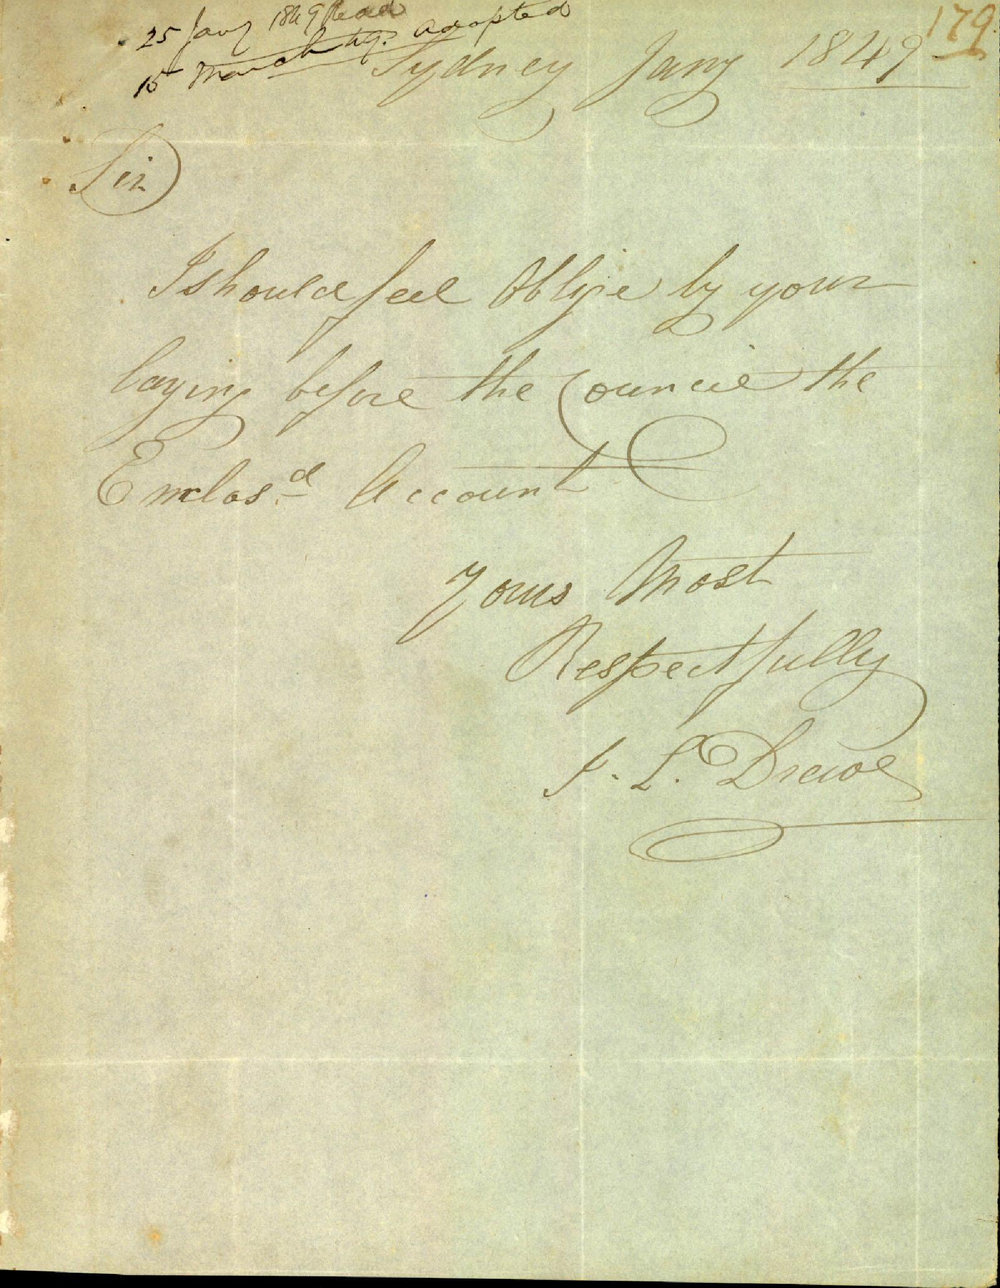 25 Jany 1849 Read
15 March 49. Adopted
179.
Sydney Jany 1849
Sir
I should feel Oblige by your
laying before the Council the
Enclos.d Account
Yours Most
Respectfully
J. L. Drewe